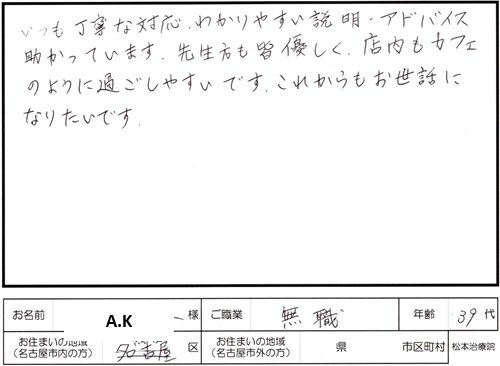 いつも丁寧な対応、わかりやすい説明・アドバイス
助かっています。先生方も皆優しく、店内もカフェ
のように過ごしやすいです。これからもお世話に
なりたいです。
お名前 A.K 様 ご職業 無職 年齢 39代
お住まいの地域 (名古屋市内の方) 名古屋 区 お住まいの地域 (名古屋市外の方) 県 市区町村 松本治療院